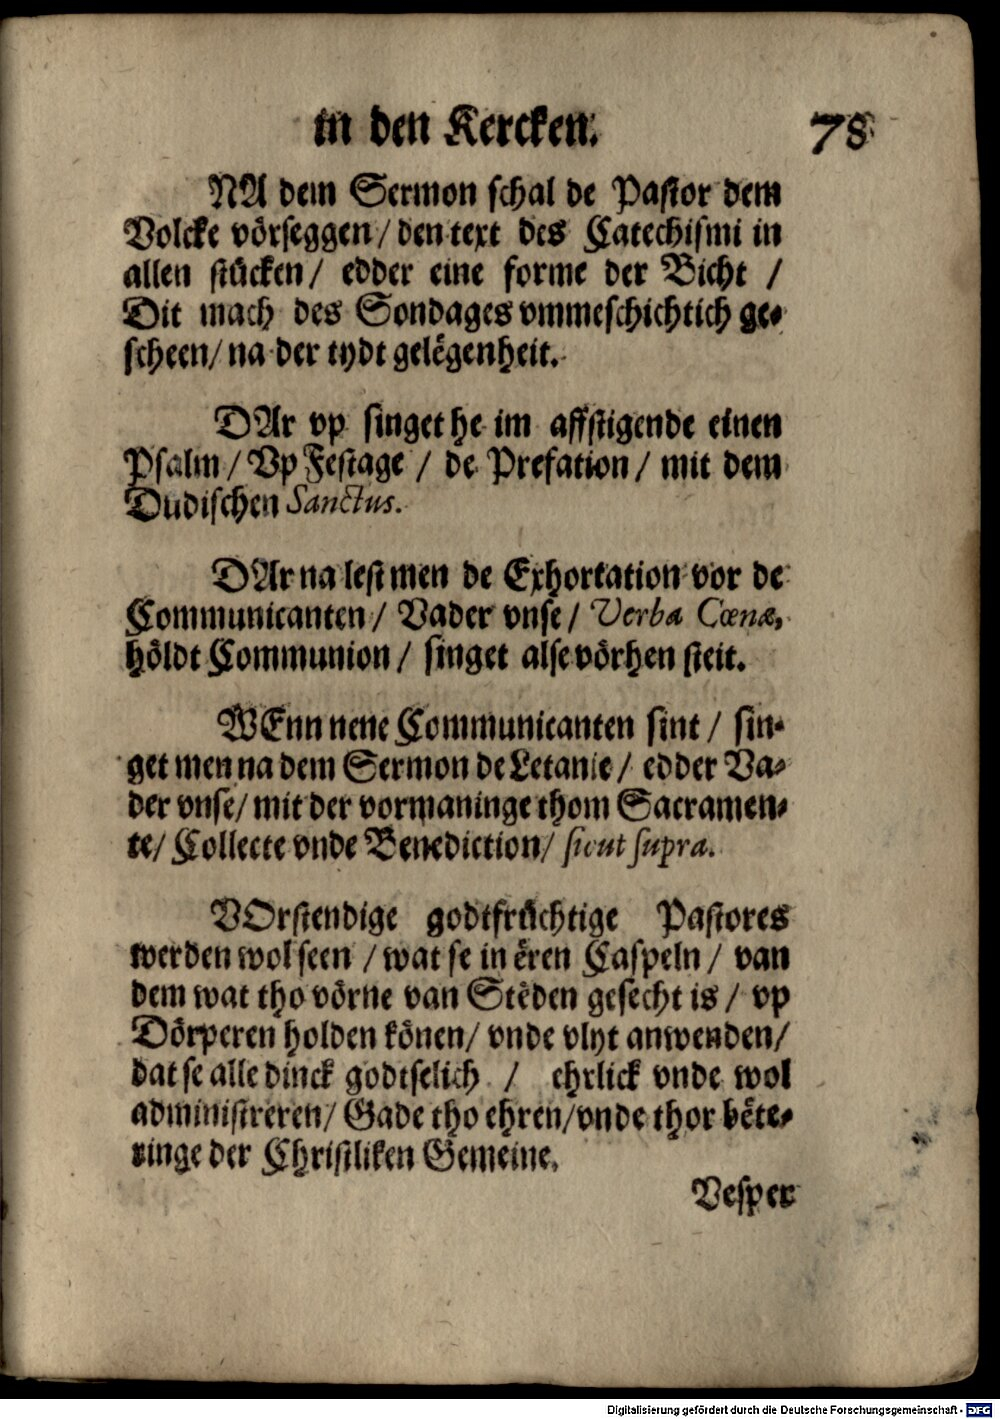 in den Kercken. 78
NA dem Sermon schal de Pastor dem
Volcke vörseggen / den text des Catechismi in
allen stücken / edder eine forme der Bicht /
Dit mach des Sondages vmmeschichtich ge-
scheen / na der tydt gelëgenheit.
DAr vp singet he im affstigende einen
Psalm / Vp Festage / de Prefation / mit dem
Dudischen Sanctus.
DAr na lest men de Exhortation vor de
Communicanten / Vader vnse / Verba Cœnæ,
höldt Communion / singet alse vörhen steit.
WEnn nene Communicanten sint / sin-
get men na dem Sermon de Letanie / edder Va-
der vnse / mit der vormaninge thom Sacramen-
te / Collecte vnde Benediction / sicut supra.
VOrstendige godtfrüchtige Pastores
werden wol seen / wat se in ëren Caspeln / van
dem wat tho vörne van Stëden gesecht is / vp
Dörperen holden könen / vnde vlyt anwenden /
dat se alle dinck godtselich / ehrlick vnde wol
administreren / Gade tho ehren / vnde thor bëte-
ringe der Christliken Gemeine.
Vesper
Digitalisierung gefördert durch die Deutsche Forschungsgemeinschaft - DFG